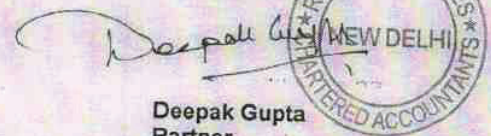 Deepak Gupta
NEW DELHI
CHARTERED ACCOUNTANTS
Deepak Gupta
Partner